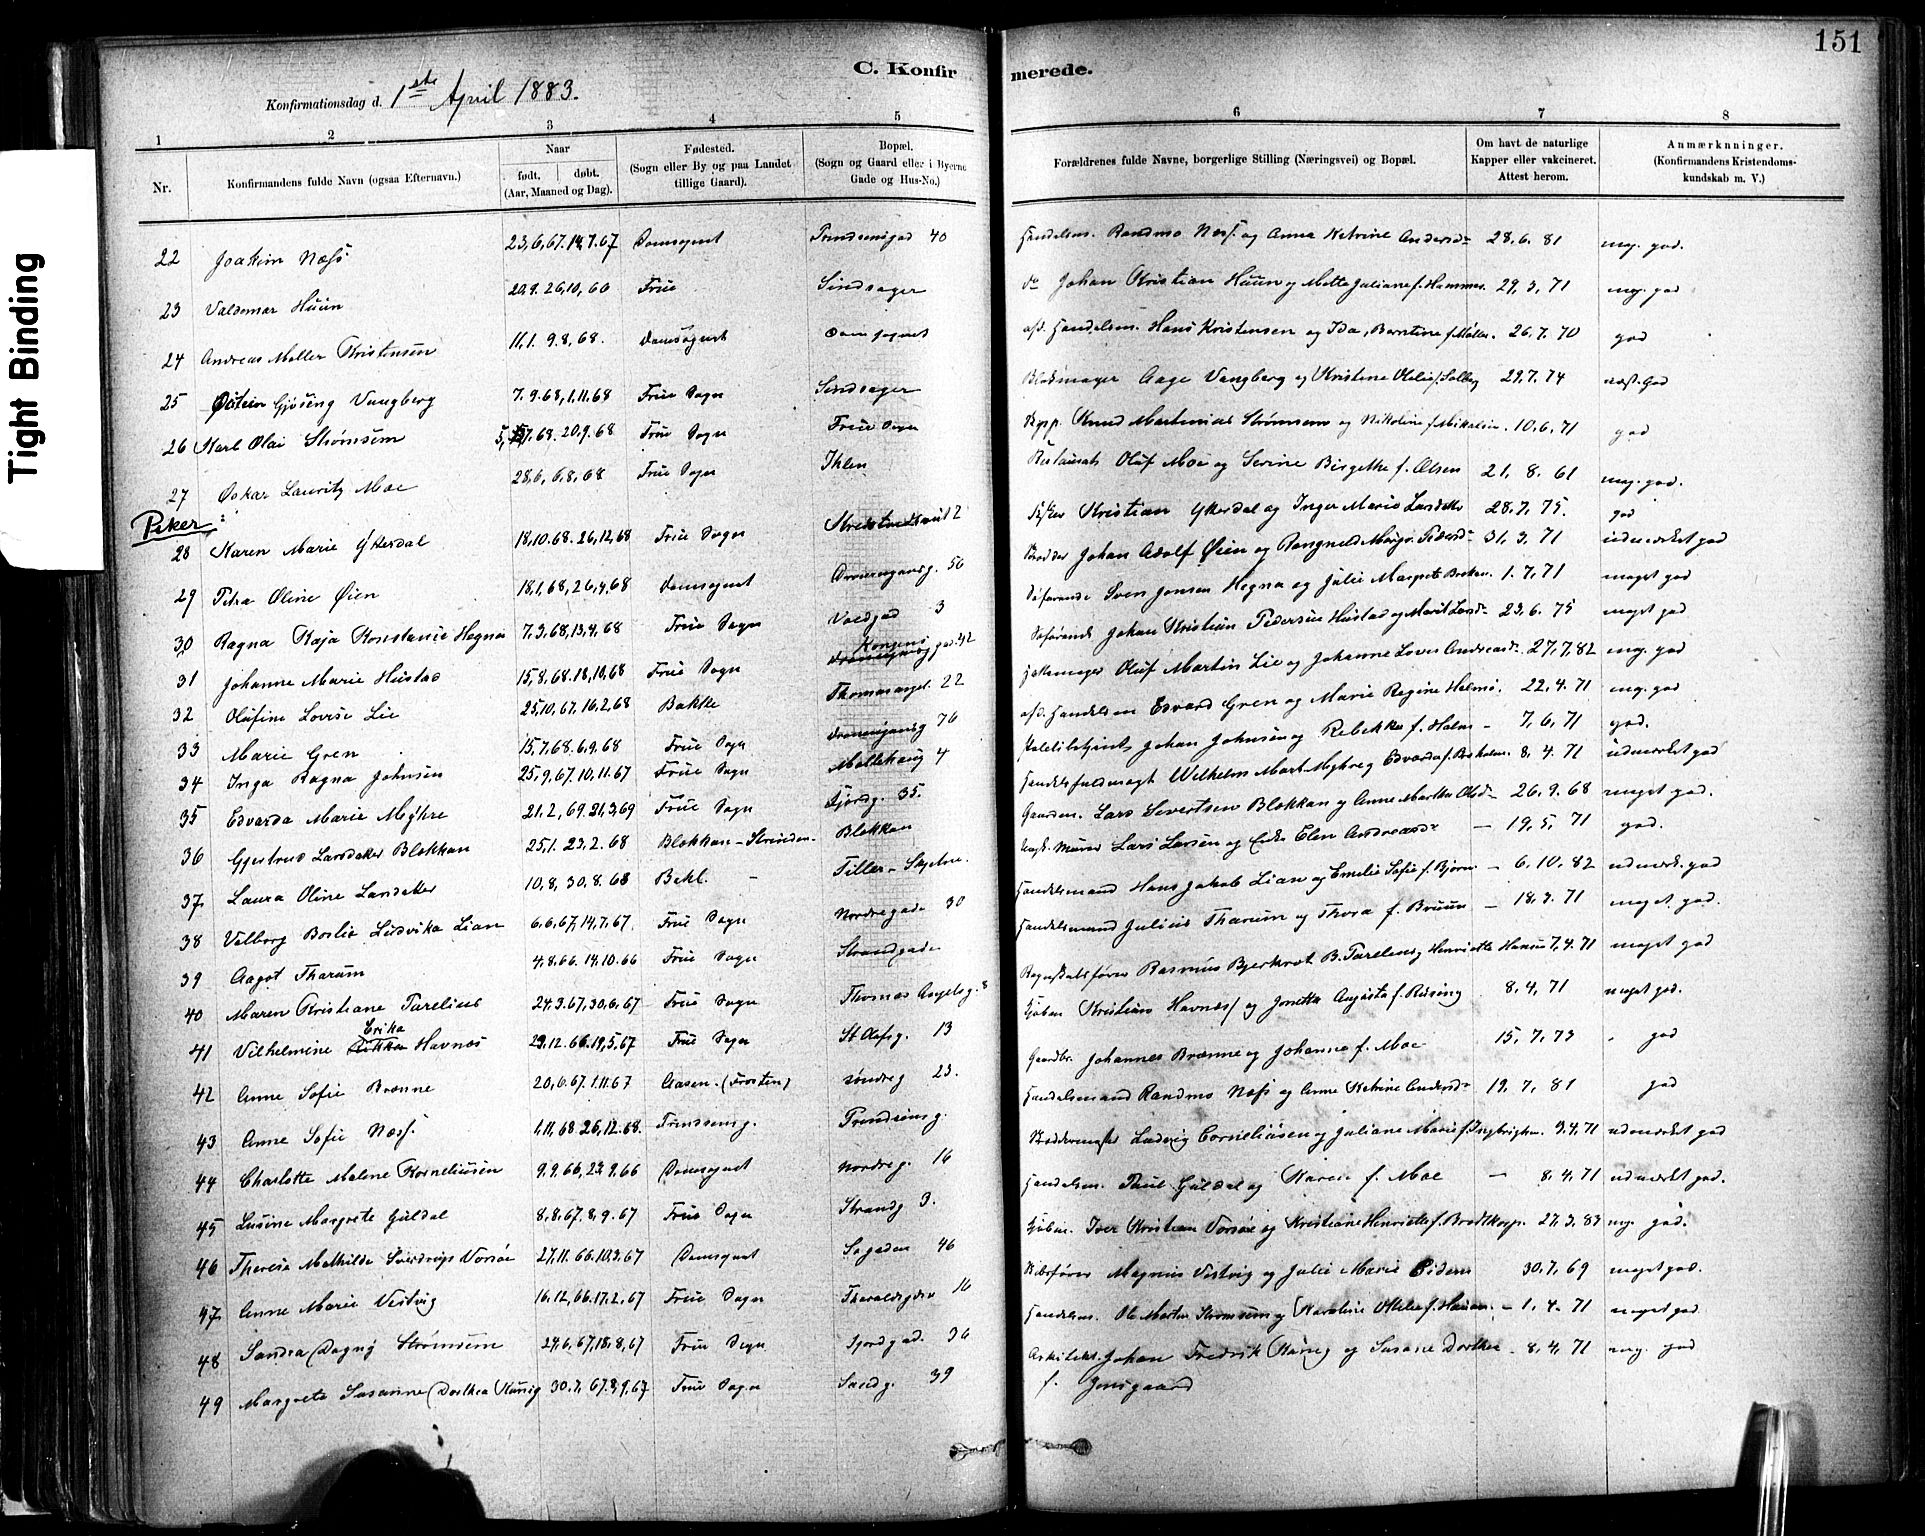 Tight Binding
151
C. Konfirmerede.
Konfirmationsdag d. 1ste April 1883.
1 2 3 4 5 6 7 8
Nr. Konfirmandens fulde Navn (ogsaa Efternavn.) Naar født. døbt. (Aar, Maaned og Dag). Fødested. (Sogn eller By og paa Landet tillige Gaard). Bopæl. (Sogn og Gaard eller i Byerne Gade og Hus-No.) Forældrenes fulde Navne, borgerlige Stilling (Næringsvei) og Bopæl. Om havt de naturlige Kapper eller vakcineret. Attest herom. Anmærkninger. (Konfirmandens Kristendomskundskab m. V.)
22 Joakim Næss 23,6,67. 14,7.67 Domsognet 40 Handelsm. Randmo Næss. og Anna Katrine Andersd. 28.6.81 mg. god.
23 Valdemar Huun 26,10, Frue Sindsager do Johan Kristian Huun og Mette Juliane f. Hammer. 29,3,71 mg. god
24 Andreas Møller Kristensen 11,1. 9.8,68. Domsognet Domsognet afd. Handelsm. Hans Kristensen og Ida Berntine f. Møller. 26.7.70 god
25 Gjøsing Vangberg 7.9.68,1.11.68 Frue Sogn Sindsager Aage Vangberg og Kristine f. Solberg 29.7.74 god
26 Karl Olai Strømsem 7.68. 20.9.68 Frue Sogn Frue Sogn Knud Martinius Strømsem og Nikoline f. Mikalsen 10.6.71 god
27 Oskar Lauritz Moe 28,6, 6.8,68 Frue Sogn Ihlen Oluf Moe og Serine Birgethe f. Olsen 21.8.61 mg. god.
Piker:
28 Karen Marie Ytterdal 18,10.68. 26,12,68 Frue Sogn Kristian Ytterdal og Inger Marie Larsd. 28.7.75. god
29 Petra Oline Øien 18,1,68, 26,4,68 Domsognet 56 Johan Adolf Øien og Pedersd. 31,3,71 udmærket god
30 Ragna Kaja Konstanse Hegna 7.3.68,13,4,68 Frue Sogn Voldgad 3 Søfarende Sven Jonsen Hegna og Julie Margrete Brekken. 1.7,71 meget god
31 Johanne Marie Hustad 15,8,68. 18,10,68 Frue Sogn Kongens gad. 42 Søfarende Johan Kristian Pedersen Hustad og Marit Larsd. 23,6.75 meget god
32 Olufine Lovise Lie 25,10,67, 16,2,68 Bakke Thomasangel. 22 Oluf Martin Lie og Johanne Lovise Andreasd. 27,7.82 mg. god
33 Marie Gren 15,7,68. 6,9.68 Frue Sogn 76 afd. Handelsm Edvard Gren og Marie Regine Holmø. 22.4.71 mg. god
34 Inga Ragna Johnsen 25,9,67. 10,11.67 Frue Sogn Møllebaug 4 Johan Johnsen og Rebekka f. Holm - 7,6,71 god.
35 Edvarda Marie Myhre 21.2,69. 21,3,69 Frue Sogn Fjordg. 35. Handelsfuldmægt Wilhelm Mart. Myhre og Edvarda f. 8.4.71 udmærket god
36 Gjertrud Larsdatter Blekkan 25,1. 23,2.68 Blekkan - Strinden Blekkan Gaardm. Lars Sivertsen Blekkan og Anne Martha Olsd. 26.9.68 meget god.
37. Laura Oline Larsdatter 10,8, 30,8.68 Bakl. - Tiller - Murer Lars Larsen og Enke Elen Andreasd. - 19,5,71 god.
38 Valborg Boslie Ludvika Lian 6.6,67, 14,7,67. Frue Sogn Nordregade 30 Handelsmand Hans Jakob Lian og Emilie Sofie f. Bjørn - 6,10,82 udmærk. god
39 Aagot Tharum 4,8.66. 14.10.66 Frue Sogn Strandgade Handelsmand Julius Tharum og Thora f. Bruun - 18,3.71 meget god.
40 Maren Kristiane Farelius 24.3.67, 30,6,67 Frue Sogn Thomas Angelsg. 8 Regnskabsfører Rasmus Bjerkvot B. Farelius og Henriette 7,4.71 meget god
41 Vilhelmine Erika Havnæs 29.12.66. 19,5,67 Frue Sogn St Olafsg. 13 Kjøbm Kristian Havnæs og Jonetta Augusta f. Røsing 8,4,71 meget god.
42 Anne Sofie Brænne 20,6.67. 1.11.67 Aasen. (Frosten) Søndreg 23. Gaardbr. Johannes Brænne og Johanna f. Moe 15,7,73 god
43 Anne Sofie Næss. 1,11,68 26,12.68. Trondsensg. Trondsensg. Handelsmand Randmo Næss og Anne Katrine Andersd. 19.7,81 god
44 Charlotte Malene Korneliussen 9.9.66, 23.9.66 Domsognet Nordreg. 16 Ludvig Corneliusen og Juliane Marie f. Ingbrigtsen. 9.4.71 udmærket god
45 Lusine Margrete Guldal 8,8.67. 8,9.67 Frue Sogn Strandg 3. Handelsm. Paul Guldal og Karen f. Moe - 8,4,71 udmærket god.
46 Therese Mathilde Sverdrup Vorsøe 27,11.66. 10.3.67 Domsognet 46 Kjøbm. Iver Kristian Vorsøe og Kristiane Henriette f. Brodtkorp. 27.3.83 mg. god.
47. Anne Marie Vestvig 16,12,66. 17.2,67 Frue Sogn 16 Skibsfører Magnus Vestvig og Julie Marie 30.7,69 meget god.
48 Sandra Dagny Strømsem 24,6,67, 18,8,67 Frue Sogn Fjordgad. 36 Handelsm. Ole Martin Strømsem og Karoline - 1.4.71 meget god
49 Margrete Susanne Dorthea Kunig 30.7, 67. 8,9.67 Frue Sogn Sandg. 39 Arkitekt. Johan Fredrik Kunig og Susanne Dorthea - 8,4,71 mg. god
f. Jensgaard